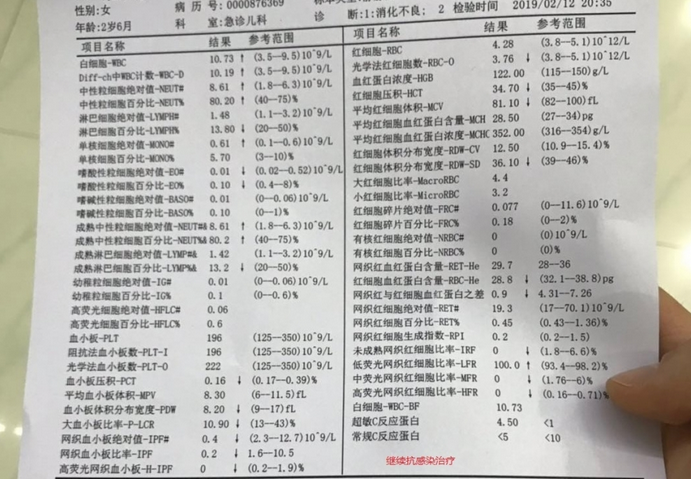 性别:女 病 历 号:0000876369
年龄:2岁6月 科 室:急诊儿科 诊 断:1:消化不良; 2 检验时间 2019/02/12 20:35
项目名称 结果 参考范围
白细胞-WBC 10.73 ↑ (3.5--9.5)10^9/L
Diff-ch中WBC计数-WBC-D 10.19 ↑ (3.5--9.5)10^9/L
中性粒细胞绝对值-NEUT# 8.61 ↑ (1.8--6.3)10^9/L
中性粒细胞百分比-NEUT% 80.20 ↑ (40--75)%
淋巴细胞绝对值-LYMPH# 1.48 (1.1--3.2)10^9/L
淋巴细胞百分比-LYMPH% 13.80 ↓ (20--50)%
单核细胞绝对值-MONO# 0.61 ↑ (0.1--0.6)10^9/L
单核细胞百分比-MONO% 5.70 (3--10)%
嗜酸性粒细胞绝对值-EO# 0.01 ↓ (0.02--0.52)10^9/L
嗜酸性粒细胞百分比-EO% 0.10 ↓ (0.4--8)%
嗜碱性粒细胞绝对值-BASO# 0.01 (0--0.06)10^9/L
嗜碱性粒细胞百分比-BASO% 0.10 (0--1)%
成熟中性粒细胞绝对值-NEUT#& 8.61 ↑ (1.8--6.3)10^9/L
成熟中性粒细胞百分比-NEUT%& 80.2 ↑ (40--75)%
成熟淋巴细胞绝对值-LYMP#& 1.42 (1.1--3.2)10^9/L
成熟淋巴细胞百分比-LYMP%& 13.2 ↓ (20--50)%
幼稚粒细胞绝对值-IG# 0.01 (0--0.06)10^9/L
幼稚粒细胞百分比-IG% 0.1 (0--0.6)%
高荧光细胞绝对值-HFLC# 0.06
高荧光细胞百分比-HFLC% 0.6
血小板-PLT 196 (125--350)10^9/L
阻抗法血小板数-PLT-I 196 (125--350)10^9/L
光学法血小板数-PLT-O 222 (125--350)10^9/L
血小板压积-PCT 0.16 ↓ (0.17--0.39)%
平均血小板体积-MPV 8.30 (6--11.5)fL
血小板体积分布宽度-PDW 8.20 ↓ (9--17)fL
大血小板比率-P-LCR 10.90 ↓ (13--43)%
网织血小板绝对值-IPF# 0.4 ↓ (2.3--12.7)10^9/L
网织血小板比率-IPF 0.2 ↓ 1.6--10.5
高荧光网织血小板-H-IPF 0 ↓ (0.2--1.9)%
项目名称 结果 参考范围
红细胞-RBC 4.28 (3.8--5.1)10^12/L
光学法红细胞数-RBC-O 3.76 ↓ (3.8--5.1)10^12/L
血红蛋白浓度-HGB 122.00 (115--150)g/L
红细胞压积-HCT 34.70 ↓ (35--45)%
平均红细胞体积-MCV 81.10 ↓ (82--100)fL
平均红细胞血红蛋白含量-MCH 28.50 (27--34)pg
平均红细胞血红蛋白浓度-MCHC 352.00 (316--354)g/L
红细胞体积分布宽度-RDW-CV 12.50 (10.9--15.4)%
红细胞体积分布宽度-RDW-SD 36.10 ↓ (39--46)%
大红细胞比率-MacroRBC 4.4
小红细胞比率-MicroRBC 3.2
红细胞碎片绝对值-FRC# 0.077 (0--11.6)10^9/L
红细胞碎片百分比-FRC% 0.18 (0--2)%
有核红细胞绝对值-NRBC# 0 (0)10^9/L
有核红细胞百分比-NRBC% 0 (0)%
网织红血红蛋白含量-RET-He 29.7 28--36
红细胞血红蛋白含量-RBC-He 28.8 ↓ (32.1--38.8)pg
网织红与红细胞血红蛋白之差 0.9 ↓ 4.31--7.26
网织红细胞绝对值-RET# 19.3 (17--70.1)10^9/L
网织红细胞百分比-RET% 0.45 (0.43--1.36)%
网织红细胞生成指数-RPI 0.2 (0.2--1.5)
未成熟网织红细胞比率-IRF 0 ↓ (1.8--6.6)%
低荧光网织红细胞比率-LFR 100.0 ↑ (93.4--98.2)%
中荧光网织红细胞比率-MFR 0 ↓ (1.76--6)%
高荧光网织红细胞比率-HFR 0 ↓ (0.16--0.71)%
白细胞-WBC-BF 10.73
超敏C反应蛋白 4.50 <1
常规C反应蛋白 <5 <10
继续抗感染治疗